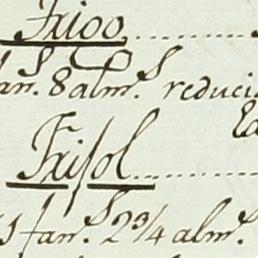 Trigo
an.s 8 alm.s reduci
Frisol
1 fan.s 2 3/4 alm.s